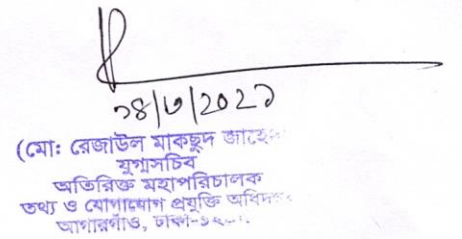 ১৪/৩/2021
(মো: রেজাউল মাকছুদ জাহে
যুগ্মসচিব
অতিরিক্ত মহাপরিচালক
তথ্য ও যোগাযোগ প্রযুক্তি অধিদ
আগারগাঁও, ঢাকা-১২